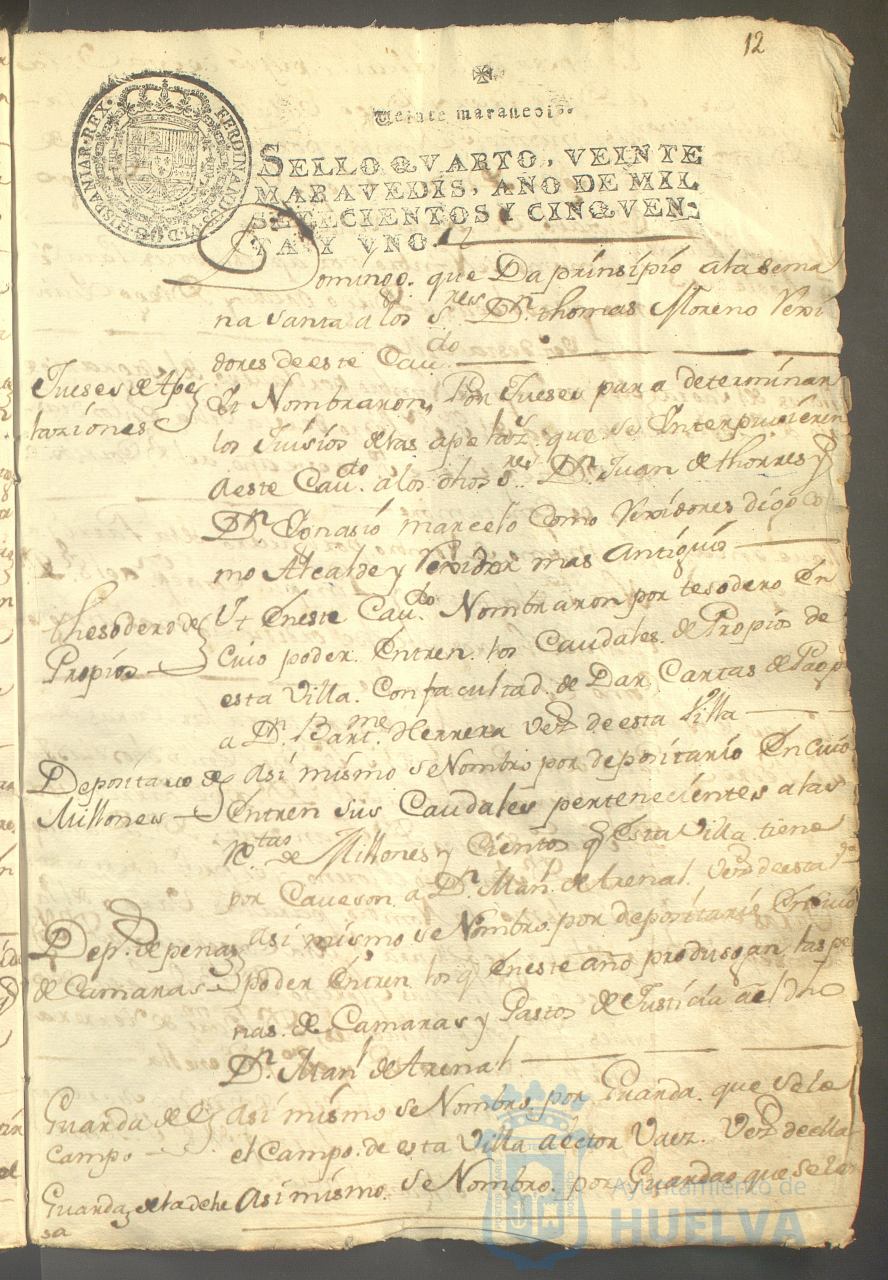 12
Veinte maravedis.
SELLO QVARTO, VEINTE
MARAVEDIS, AÑO DE MIL
SETECIENTOS Y CINQVEN-
TA Y VNO.
FERDINANDUS·VI·D·G·HISPANIAR·REX·
Domingo. que Da prinsipio a la sema
na Santa a los Sres Dn. thomas Moreno
dores de este Cavdo.
Jueses de Ape
laziones
Yt Nombraron, Por Jueses para determinar
los Juisios de las apelaz.s que se Ynterpusieren
a este Cavdo. a los dhos Sres Dn. Juan de thorres y
Dn. Ygnasio Marcelo Como Rexidores digo co
mo Alcalde y Rexidor mas Antiguo
thesodero de
Propios
Yt En este Cavdo. Nombraron por tesodero En
Cuio poder. Entren. los Caudales. de Propios de
esta Villa. Con facultad. de Dar Cartas de Pago
a Dn. Bartme. Herrera Vezo de esta Villa
Depositario de
Millones
Asi mismo se Nombro por depositario En cuio
Entren sus Caudales pertenecientes a las
de Millones y Cientos q Esta Villa tiene
por Caveson. a Dn. Manl. de Arenal. Vezo de esta Va
Dep. de penas
de Camaras
Asi mismo se Nombro. por depositario En cuio
poder Entren los q En este año produsgan las pe
nas. de Camaras y Gastos de Justicia al dho
Dn. Manl. de Arenal.
Guarda del
Campo
Asi mismo se Nombro. por Guarda. que sele
el Campo. de esta Villa a ector Vaez. Vezo de ella
Guarda de la dehe
sa
Asi mismo. se Nombro. por Guardas que selen
Ayuntamiento de
HUELVA